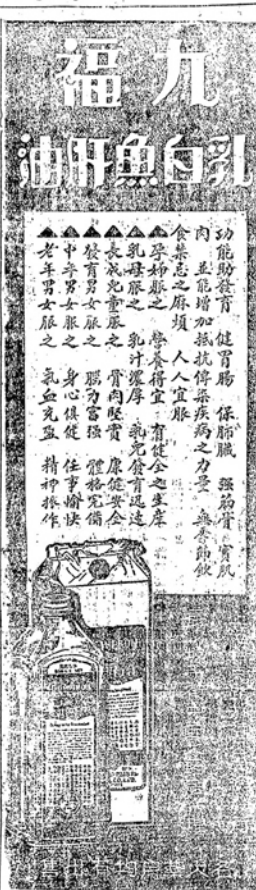 九福
乳白魚肝油
功能助發育 健胃腸 保肺臟 強筋骨 實肌
肉 並能增加抵抗傳染疾病之力量 無季節飲
食禁忌之麻煩 人人宜服
▲孕婦服之 營養得宜 有健全之生產
▲乳母服之 乳汁濃厚 乳兒發育迅速
▲長成兒童服之 骨肉堅實 康健安全
▲發育男女服之 腦力富強 體格完備
▲中年男女服之 身心俱健 任事愉快
▲老年男女服之 氣血充盈 精神振作